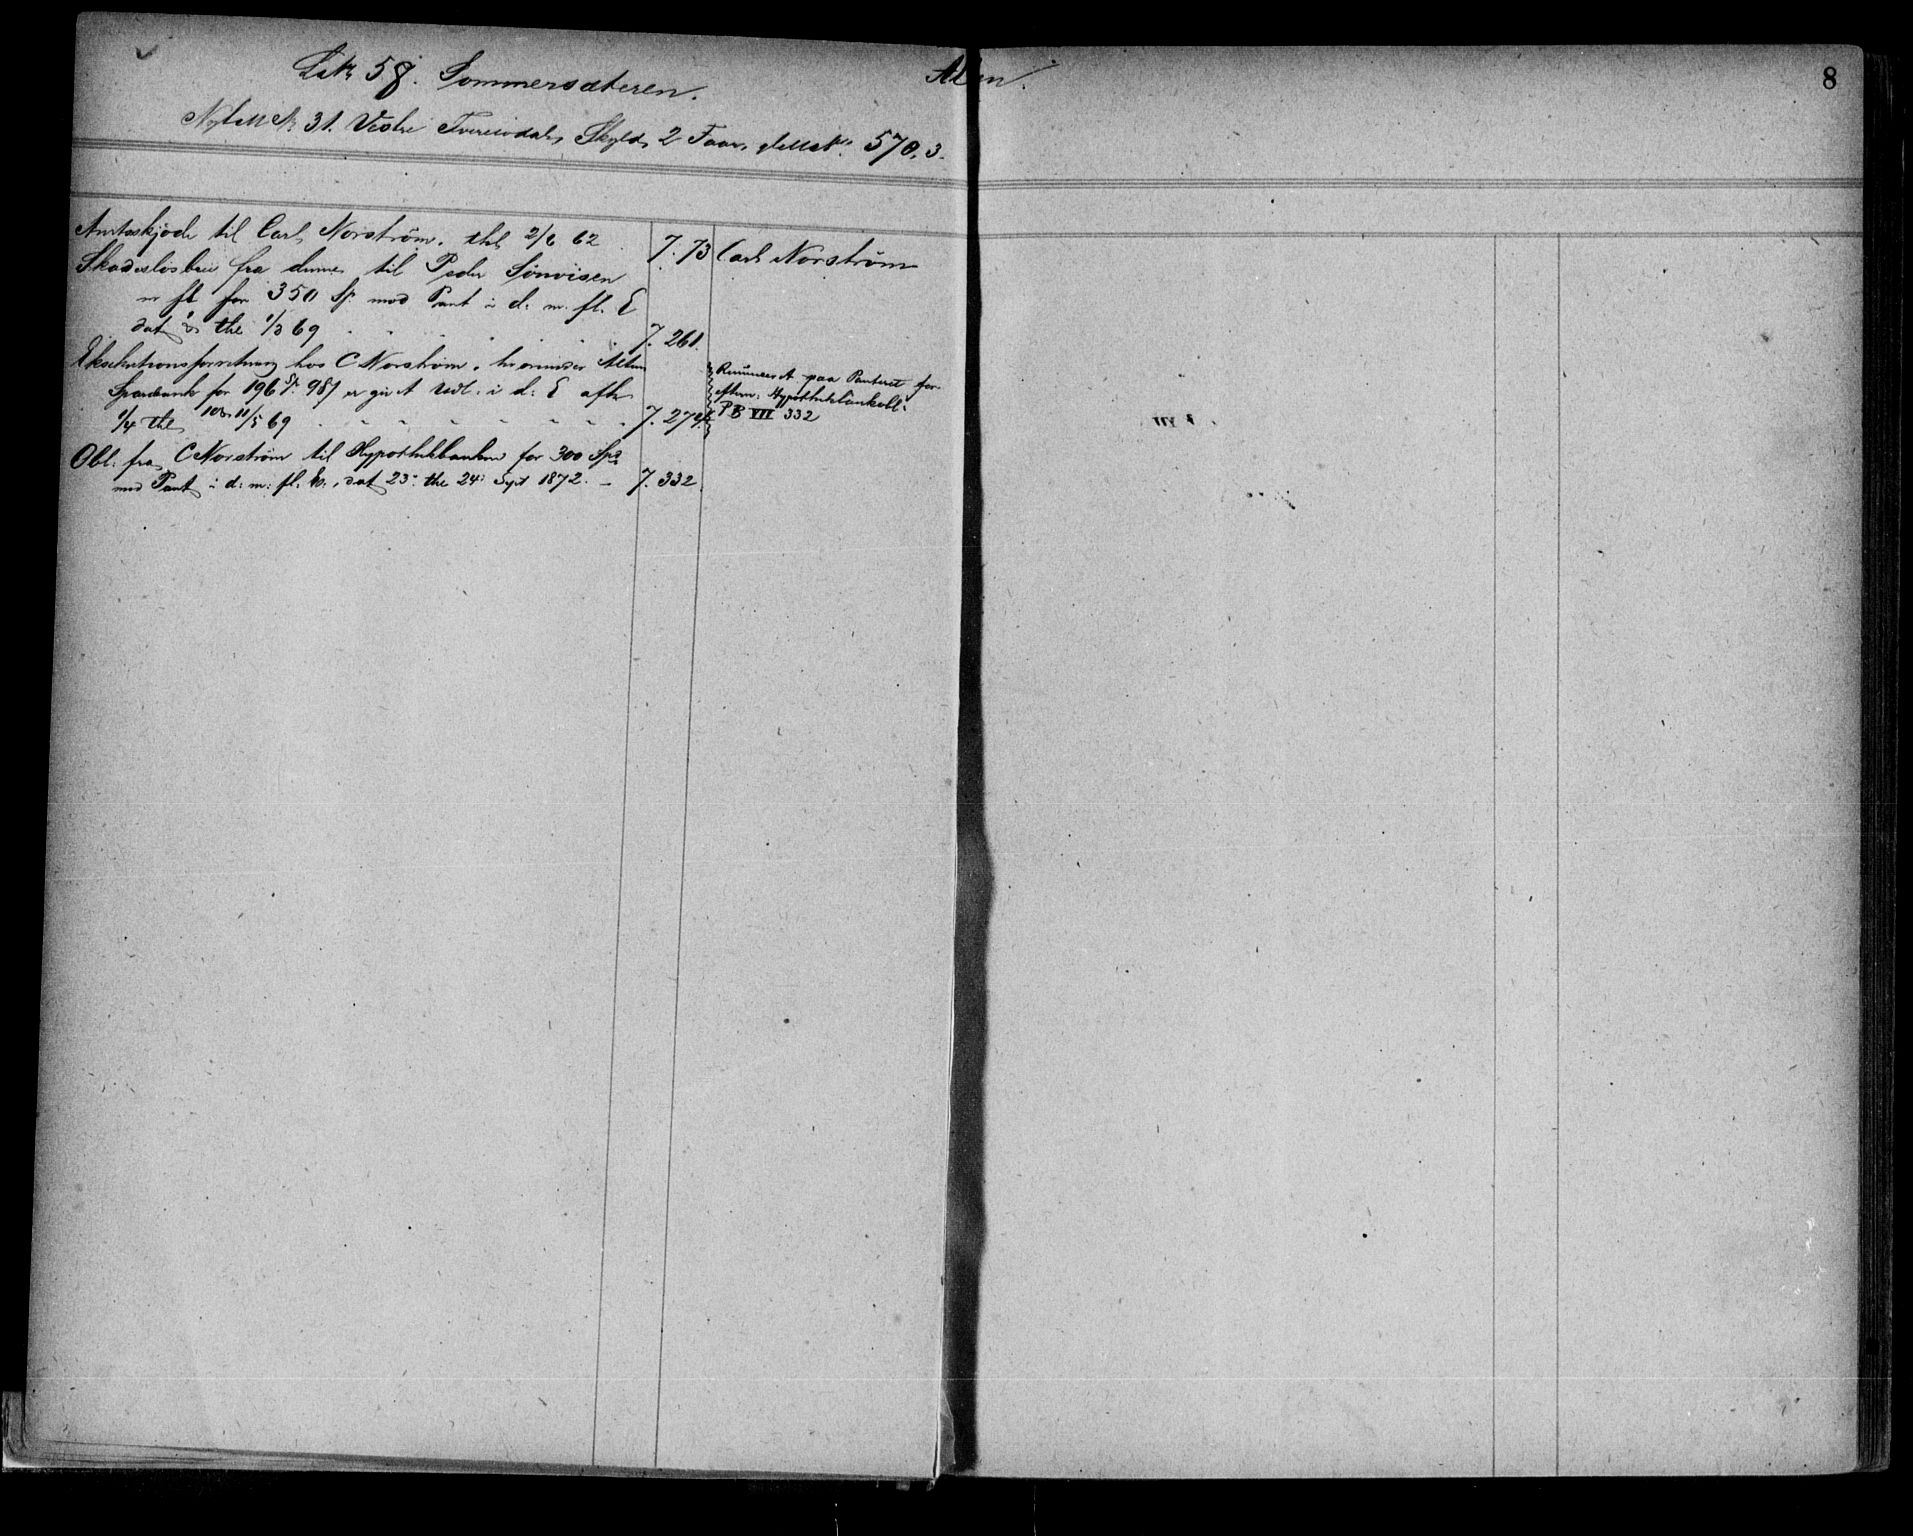 Lit. 58. Sommersæteren. Alten. 8
Nyt M N 31. Vestre Skyld, 2 570, 3.
Amtsskjøde til Carl Norstrøm. thl 2/6 62 7. 73 Carl Norstrøm
Skadesløsbrev fra denne til Peder Sönvisen
m fl for 350 Sp mod Pant i d: m. fl. E
dat & thl 1/3 69 7. 261.
Eksekutionsforretning hos C Norstrøm, hvorunder Alten
Sparebank for 196 Sp. 98 er givet Udl. i d: E efter
1/4 thl 10 & 11/5 69 7. 279.
Renunceret paa Panteret for
efterm: Hypothekbankobl:
PB VII 332
Obl: fra C Norstrøm til Hypothekbanken for 300 Spd
med Pant i d: m: fl: E., dat 23: thl 24: Sept 1872. – 7. 332.